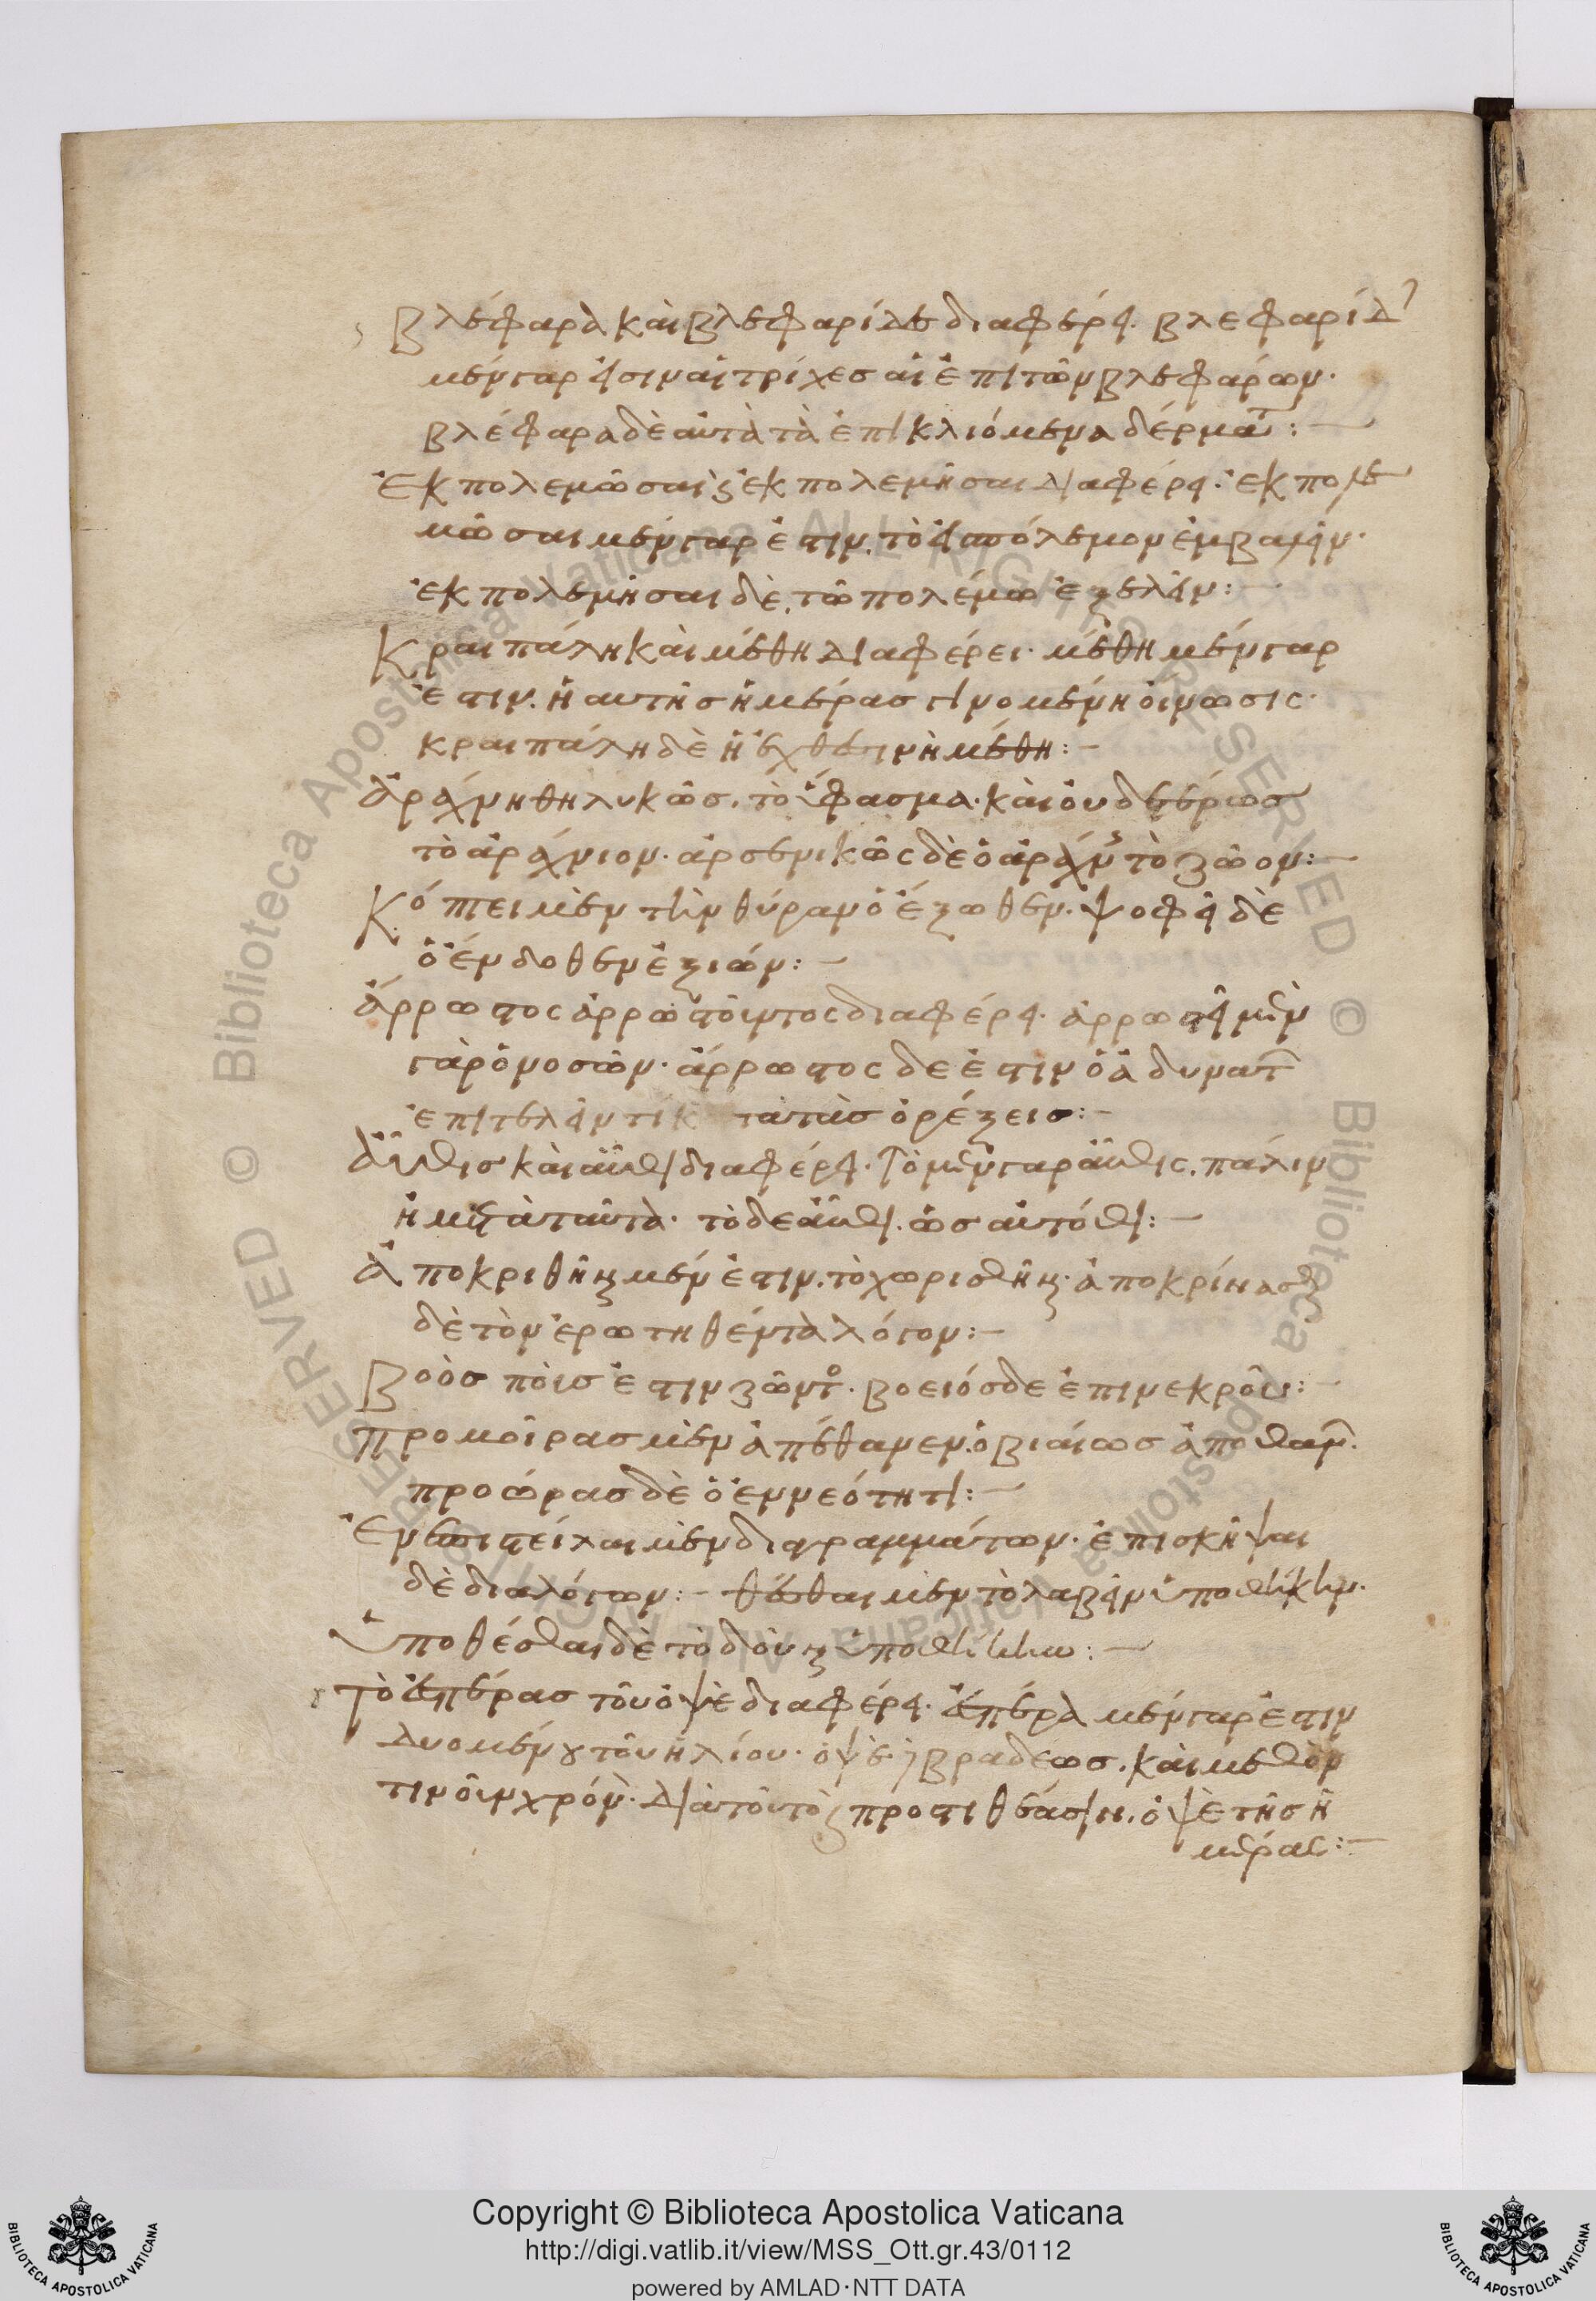 βλέφαρα καὶ βλεφαρίδε διαφέρει· βλεφαρίδ
μὲν γαρ εἰσιν αἱ τρίχες αἱ ἐπι τῶν βλεφάρων·
βλέφαρα δὲ αὐτὰ τὰ ἐπικλιόμενα δέρματ:
ἐκπολεμῶσαι κ ἐκπολεμῆσαι διαφέρει· ἐκπολε
μῶσαι μὲν γαρ ἐστιν, τὸ εἰς πόλεμον ἐμβαλεῖν·
ἐκπολεμῆσαι δὲ, τῶ πολέμω ἐξελεῖν:
Κραιπάλη καὶ μέθη διαφέρει· μέθη μὲν γαρ
ἐστιν. ἡ αυτῆς ἡμέρας γινομένη οἴνωσις·
κραιπάλη δὲ ἡ ἐχθεσινὴ μέθη:
Ἀράχνη θηλυκῶς. τὸ ὕφασμα· καὶ οὐδετέρως
τὸ ἀράχνιον· ἀρσενικῶς δὲ ὁ ἀράχνης τὸ ζῶον:
Κόπτει μὲν τὴν θύραν ὁ ἔξωθεν· ψοφεῖ δὲ
ὁ ἔνδοθεν ἐξιών:
Ἄρρωστος ἀρρωστοῦντος διαφέρει· ἀρρωστεῖ μὲν
γὰρ ὁ νοσῶν· ἄρρωστος δε ἐστιν ὁ ἀδυνατ
ἐπιτελεῖν τι κατα τὰς ὀρέξεις:
Αὖθις καὶ αὖθι διαφέρει· Τὸ μὲν γαρ αὖθις, πάλιν
ἢ μετὰ ταῦτα· τὸ δε αὖθι. ὡς αὐτόθι:
Ἀποκριθῆναι μέν ἐστιν. τὸ χωρισθῆναι· ἀποκρίνασθαι
δὲ τὸν ἐρωτηθέντα λόγον:
Βοὸς πόις ἐστιν ζῶντο· βοειός δε ἐπι νεκροῦ:
Προμοίρας μὲν ἀπέθανεν. ὁ βιαίως ἀποθαν.
προώρας δὲ ὁ ἐν νεότητι:
Ἐν ἐπιστεῖλαι μὲν δια γραμμάτων· ἐπισκῆψαι
δὲ δια λόγων: θέσθαι μὲν τὸ λαβεῖν ὑποθήκην·
ὑποθέσθαι δὲ τὸ δοῦναι ὑποθήκην:
Τὸ ἑσπέρας τοῦ ὀψὲ διαφέρει· ἑσπέρα μὲν γαρ ἐστιν
δυομένου τοῦ ἡλίου· ὀψὲ. βραδεως. καὶ μεθ ὃν
τινοῦν χρόνον· διὰ τοῦτο κ προστιθέασιν. ὀψὲ τῆς ἡ
μέρας:
Copyright © Biblioteca Apostolica Vaticana
http://digi.vatlib.it/view/MSS_Ott.gr.43/0112
powered by AMLAD·NTT DATA